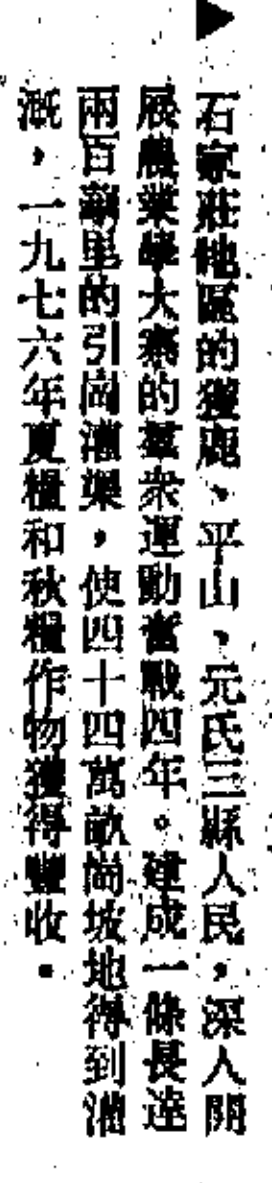 ▶石家莊地區的獲鹿、平山、元氏三縣人民，深入開
展農業學大寨的羣衆運動奮戰四年。建成一條長達
兩百華里的引崗灌渠，使四十四萬畝崗坡地得到灌
溉，一九七六年夏糧和秋糧作物獲得豐收。